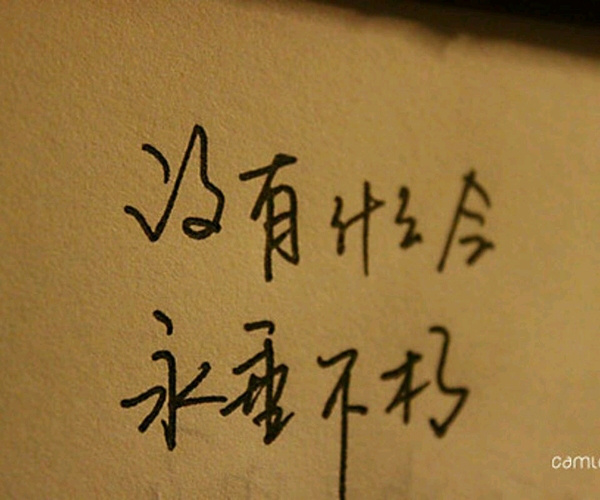 没有什么会
永垂不朽
camlu